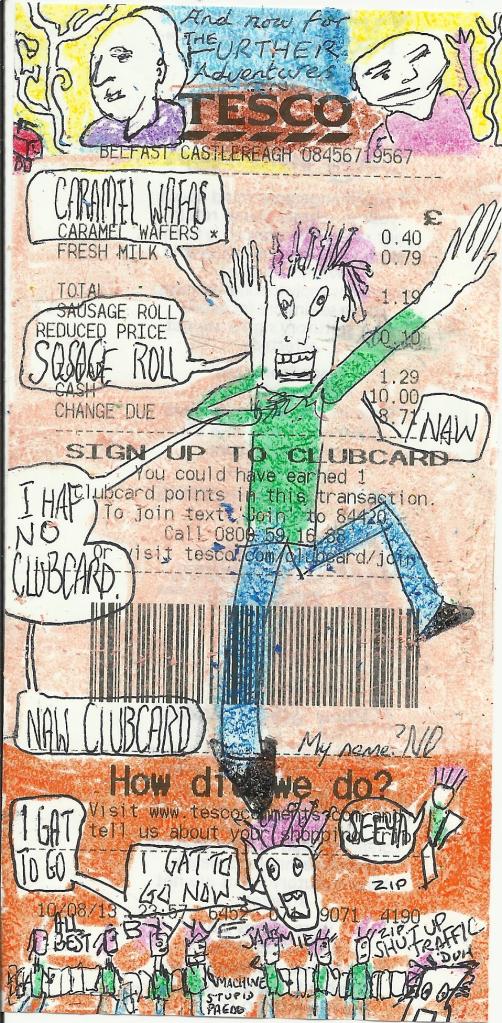 And now for
THE
FURTHER
Adventures
TESCO
BELFAST CASTLEREAGH 08456719567
CARAMEL WAFAS
£
CARAMEL WAFERS * 0.40
FRESH MILK 0.79
TOTAL 1.19
SAUSAGE ROLL
REDUCED PRICE 0.10
SOSAGE ROLL
1.29
CASH 10.00
CHANGE DUE 8.71
NAW
SIGN UP TO CLUBCARD
You could have earned 1
Clubcard points in this transaction.
To join text 'Join' to 84420
Call 0800 59 16 88
or visit tesco.com/clubcard/join
I HAF
NO
CLUBCARD.
NAW CLUBCARD
My name? NO
How did we do?
Visit www.tescocomments.com and
tell us about your shopping trip
I GAT
TO GO
I GAT TO
GO NOW
ZIP
10/08/13 22:57 6452 9071 4190
BEST
JAMMIE
ZIP
SHUT UP
TRAFFIC
DUH
MACHINE
STUPID